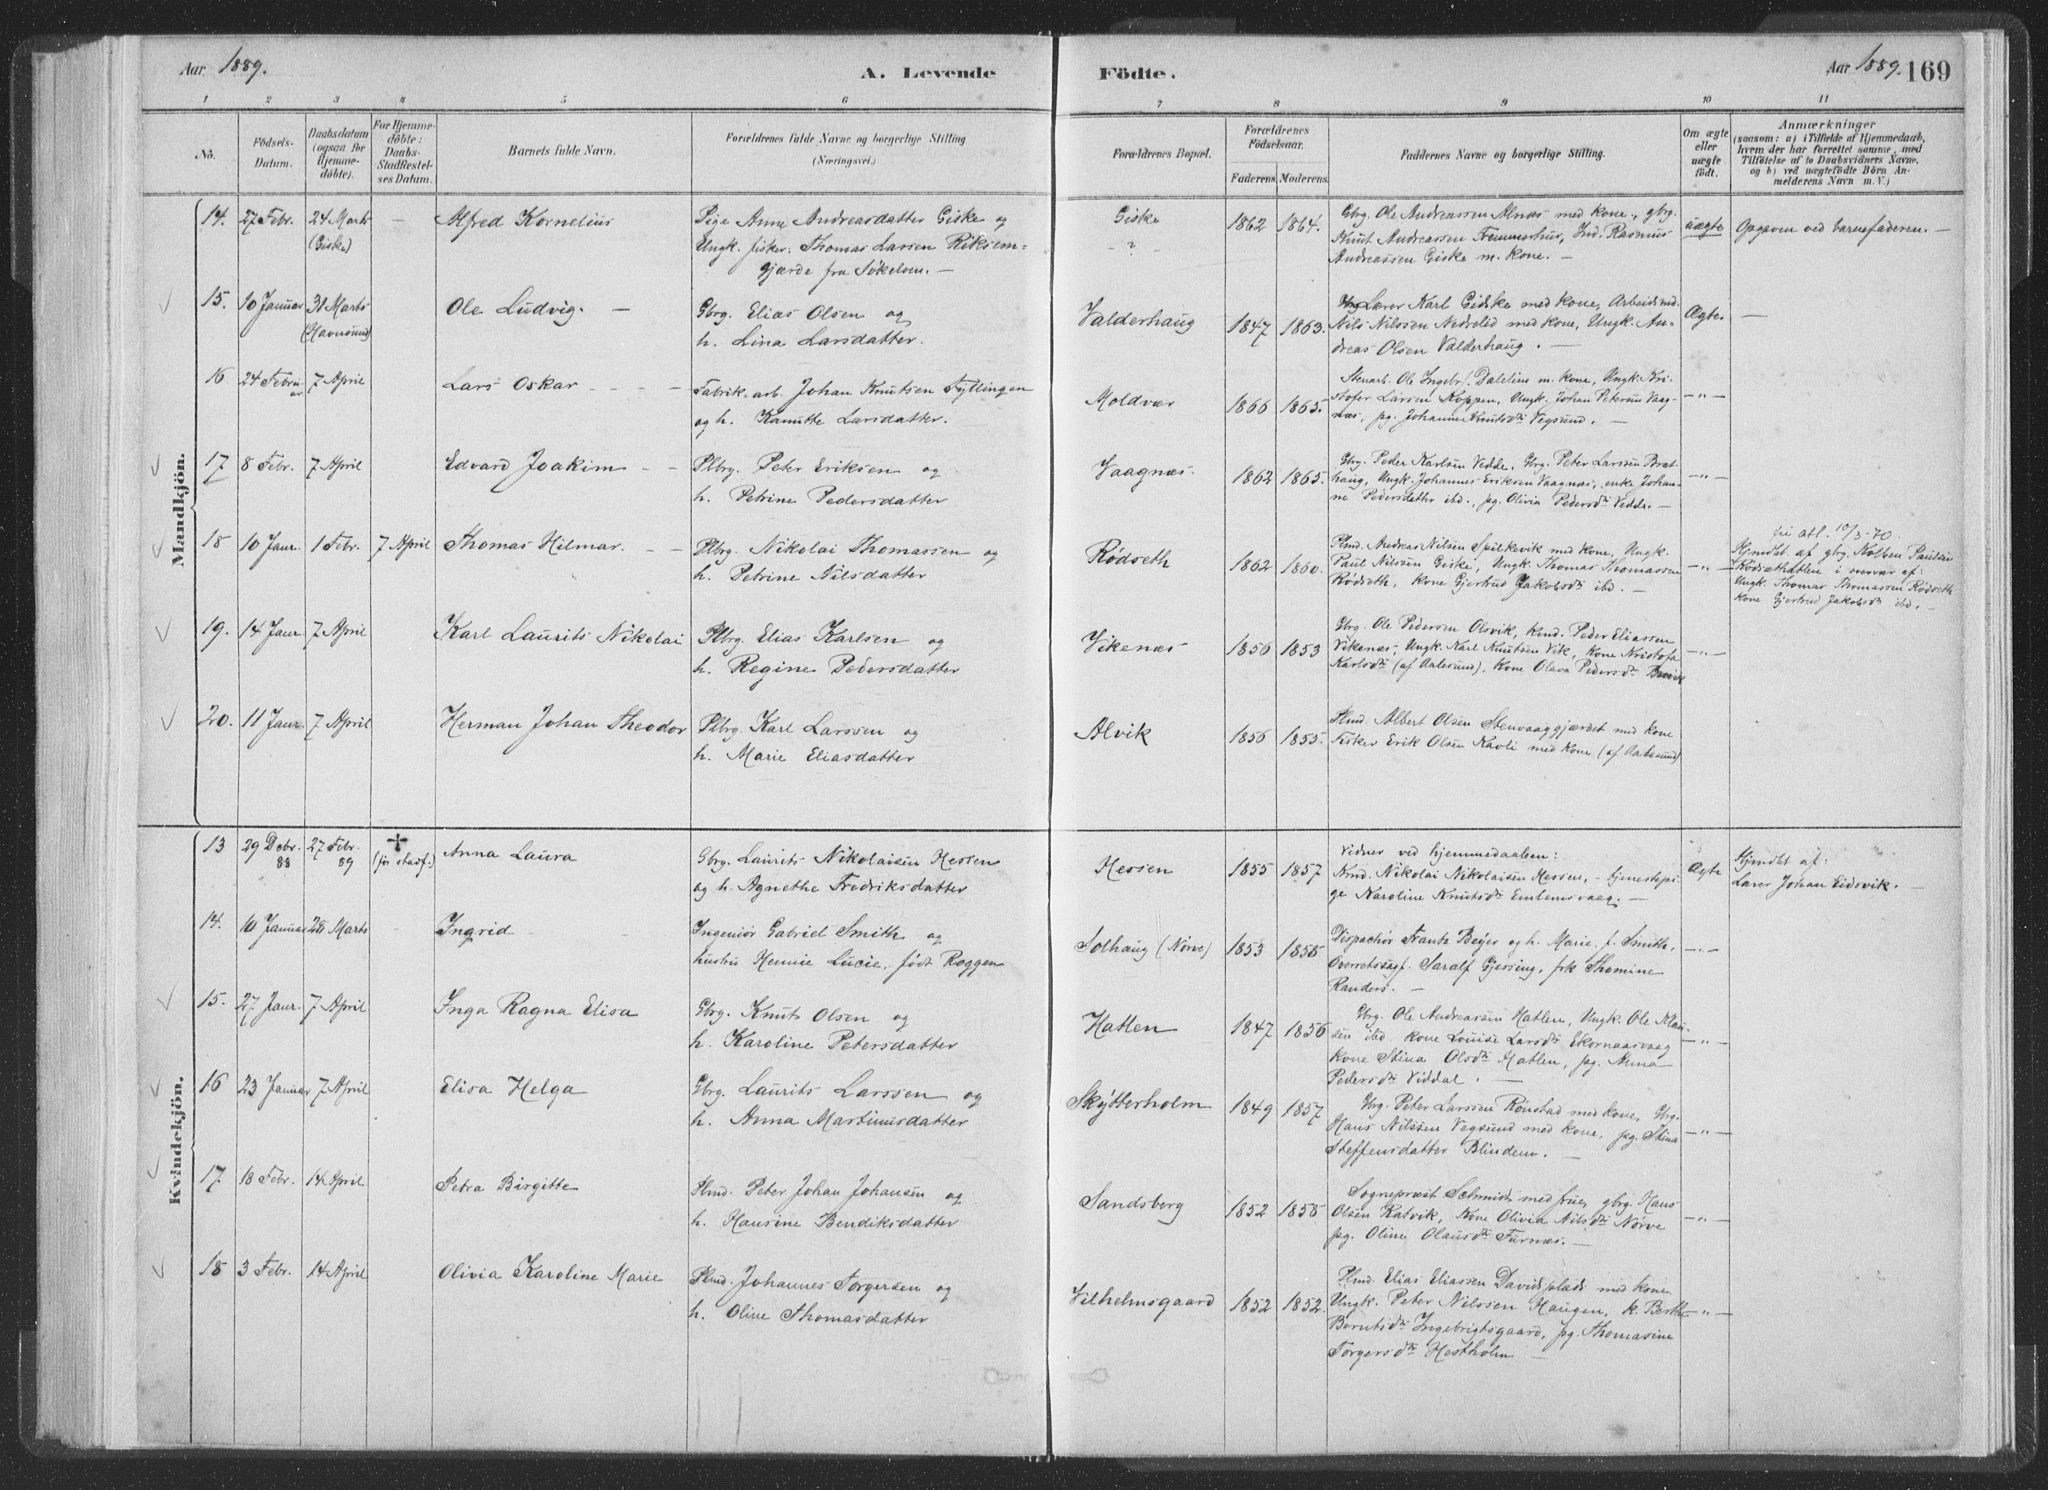 Aar 1889.
A. Levende
Födte.
Aar 1889. 169
1 2 3 4 5 6 7 8 9 10 11
No.
Födsels-
Datum.
Daabsdatum
(ogsaa for
Hjemme-
döbte).
For Hjemme-
döbte:
Daabs-
Stadfæstel-
ses Datum.
Barnets fulde Navn.
Forældrenes fulde Navne og borgerlige Stilling
(Næringsvei.)
Forældrenes Bopæl.
Forældrenes
Födselsaar.
Faderens. Moderens.
Faddernes Navne og borgerlige Stilling.
Om ægte
eller
uægte
födt.
Anmærkninger
(saasom: a) i Tilfælde af Hjemmedaab,
hvem der har forrettet samme, med
Tilföielse af to Daabsvidners Navne,
og b) ved uægtefödte Börn An-
melderens Navn m. V.)
Mandkjön.
14. 27 Febr. 24 Marts
(Giske)
—
Alfred Kornelius
Pige Anne Andreasdatter Giske og
Ungk. fisker. Thomas Larsen Riksem-
gjærde fra Søkelven. —
Giske
?
1862 1864.
Gbrg. Ole Andreassen Alnæs med kone, gbrg.
Knut Andreassen Fremmerhus, Ind. Rasmus
Andreassen Giske m. kone. —
uægte
Opgaven ved barnefaderen. —
15. 10 Januar 31 Marts
(Havnsund)
Ole Ludvig. —
Gbrg. Elias Olsen og
h. Lina Larsdatter.
Valderhaug
1847 1863.
Lærer Karl Gidske med kone, Arbeidsmd.
Nils Nilssen Nedrelid med kone, Ungk. An-
dreas Olsen Valderhaug. —
Ægte.
—
16. 24 Febru
ar
7 April
Lars Oskar
Fabrik. arb. Johan Knutsen Fyllingen
og h. Knutte Larsdatter.
Moldvær
1866 1865.
Stenarb. Ole Ingebr. Dalelius m. kone, Ungk. Kri-
stofer Larsen Koppen, Ungk. Johan Petersen Vaag-
næs, pg. Johanne Knutsdr. Vegsund. —
—"—
17 8 Febr. 7 April
Edvard Joakim
Plbrg. Peter Eriksen og
h. Petrine Pedersdatter
Vaagnæs
1862 1865.
Gbrg. Peder Karlsen Vedde, Gbrg. Peter Larssen Brat-
haug, Ungk. Johannes Eriksen Vaagnæs, enke Johan-
ne Pedersdatter ibd., pg. Olivia Pedersdr. Vedde. —
—"—
18 10 Janr. 1 Febr. 7 April
Thomas Hilmar.
Plbrg. Nikolai Thomassen og
h. Petrine Nilsdatter
Rødseth
1862 1860.
Plmd. Andreas Nilsen Spilkevik med kone, Ungk.
Paul Nilsen Giske, Ungk. Thomas Thomassen
Rødseth, kone Gjertrud Jakobsdr. ibd. —
—"—
fri atl. 10/3-70.
Hjmdbt af gbrg. Kolben Paulsen
Rødsethatlen i overvær af:
Ungk. Thomas Thomassen Rødseth
kone Gjertrud Jakobsdr. ibd. —
19. 14 Janr. 7 April
Karl Laurits Nikolai
Plbrg. Elias Karlsen og
h. Regine Pedersdatter
Vikenæs
1856 1853
Gbrg. Ole Pedersen Olsvik, Kmd. Peder Eliassen
Vikenæs, Ungk. Karl Knutsen Vik, Kone Kristofa
Karlsdr. (af Aalesund), Kone Olava Pedersdr.
—"—
20. 11 Janr. 7 April
Herman Johan Theodor
Plbrg. Karl Larssen og
h. Marie Eliasdatter
Alvik
1856 1855.
Plmd. Albert Olsen Stenvaaggjærdet med kone
Fisker Erik Olsen Kavli med kone (af Aalesund)
Kvindekjön.
13 29 Debr.
88
27 Febr.
89
✝
(før stadf.)
Anna Laura
Gbrg. Laurits Nikolaisen Hessen
og h. Agnethe Fredriksdatter
Hessen
1855 1857
Vidner ved hjemmedaaben:
Kmd. Nikolai Nikolaisen Hessen, tjenestepi-
ge Karoline Knutsdr. Emlemsvaag. —
Ægte
Hjmdbt af:
Lærer Johan Eidsvik. —
14. 10 Januar 28 Marts
Ingrid
Ingeniør Gabriel Smith og
hustru Hennie Lucie, født Roggen
Solhaug (Nørve)
1853 1858
Dispachør Frantz Beyer og h. Marie f. Smith,
Overretssagf. Saralf Gjersing, frk Thomine
Randers. —
—"—
15. 27 Janr. 7 April
Inga Ragna Elisa
Gbrg. Knut Olsen og
h. Karoline Petersdatter
Hatlen
1847 1856
Gbrg. Ole Andreassen Hatlen, Ungk. Ole Klau-
sen ibd, kone Louise Larsdr. Ekornaasvaag
kone Stina Olsdr. Hatlen, pg. Anna
Pedersdr. Viddal. —
—"—
16 23 Januar 7 April
Elisa Helga
Gbrg. Laurits Larssen og
h. Anna Martinusdatter
Skytterholm
1849 1857
Gbrg. Peter Larssen Rønstad med kone, Gbrg.
Hans Nilssen Vegsund med kone, pg. Stina
Steffensdatter Blindem. —
—"—
17. 18 Febr. 14 April
Petra Birgitte
Plmd. Peter Johan Johansen og
h. Hansine Bendiksdatter
Sandsberg
1852 1858
Sogneprest Schmidt med frue, gbrg. Hans
Olsen Ratvik, Kone Olivia Nilsdr. Nørve
pg. Oline Olausdr. Furnæs. —
—"—
18 3 Febr. 14 April
Olivia Karoline Marie
Plmd. Johannes Torgersen og
h. Oline Thomasdatter
Vilhelmsgaard
1852 1852.
Plmd. Elias Eliassen Davidsplads med kone
Ungk. Peter Nilssen Haugen, k. Berthe
Berntsdr. Ingebrigtsgaard, pg. Thomasine
Torgersdr. Hestholm —
—"—